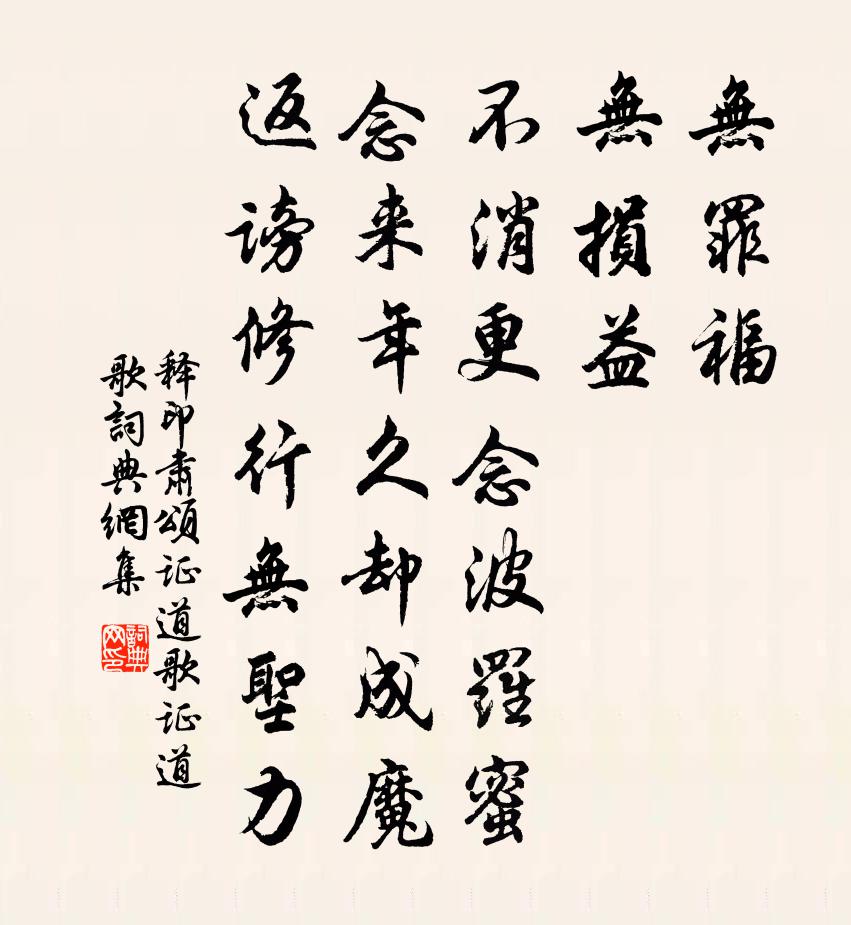 無罪福
無損益
不消更念波羅蜜
念来年久却成魔
返謗修行無聖力
释印肃頌证道歌证道
歌詞典網集
詞典
网印